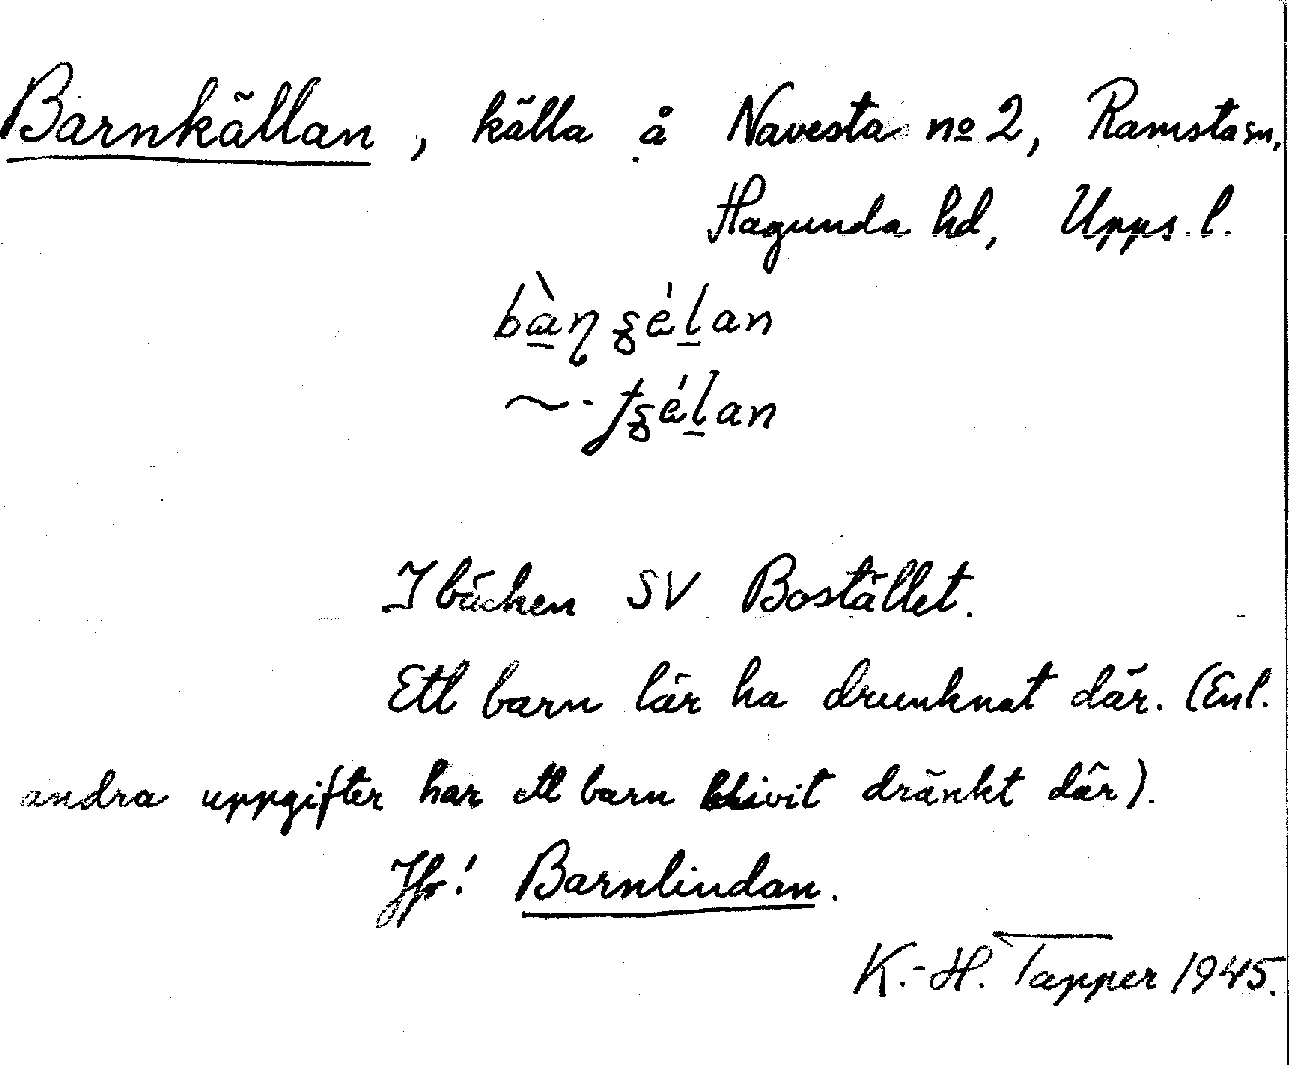 Barnkällan, källa å Navesta no 2, Ramsta sn,
Hagunda hd, Upps. l.
I bäcken SV Bostället.
Ett barn lär ha drunknat där. (Enl.
andra uppgifter har ett barn blivit dränkt där).
Jfr! Barnlindan.
K.-H. Tapper 1945.